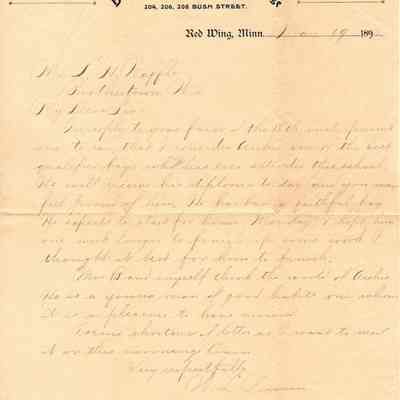 204, 206, 208 BUSH STREET.
Red Wing, Minn. 19 189
Mr.
My Dear Sir
In reply to your favor of the 18th permit
me to say that I consider Archie one of the best
qualified boys who has ever attended this school.
He will receive his diploma to day and you may
feel proud of him. He has been a faithful boy
He expects to start for home Monday. I kept him
one week longer to finish up some good I
thought it best for him to finish.
Mr. and myself think the world of Archie
He is a young man of good habits one whom
it is a pleasure to have around.
Excuse shortness of letter as I want to mail
it on this morning train
Very respectfully